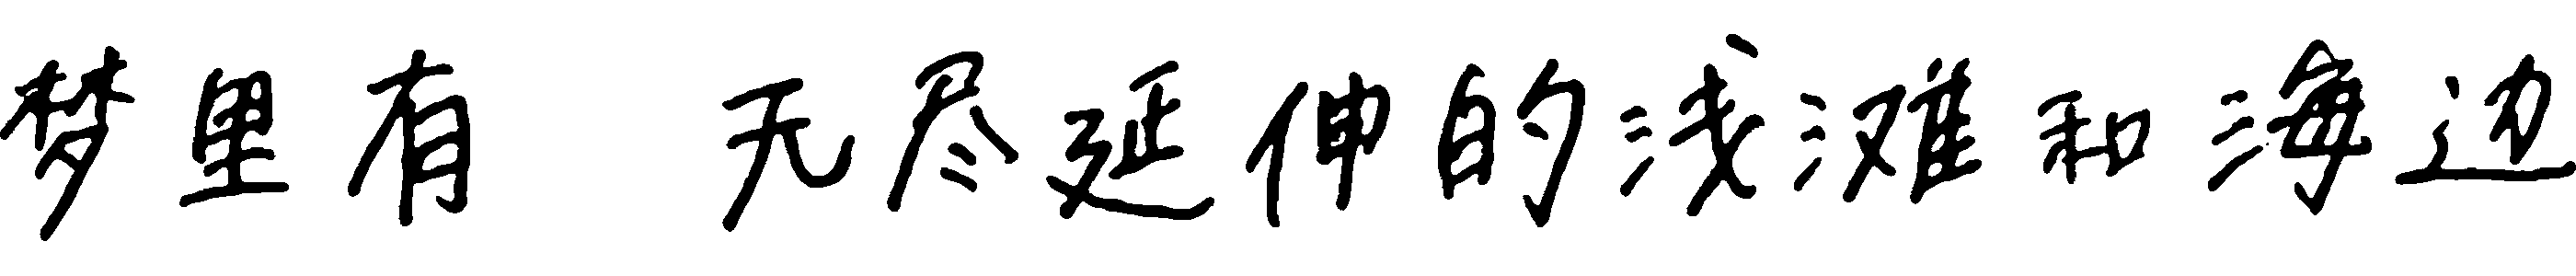 梦里有 无尽延伸的浅滩和海边